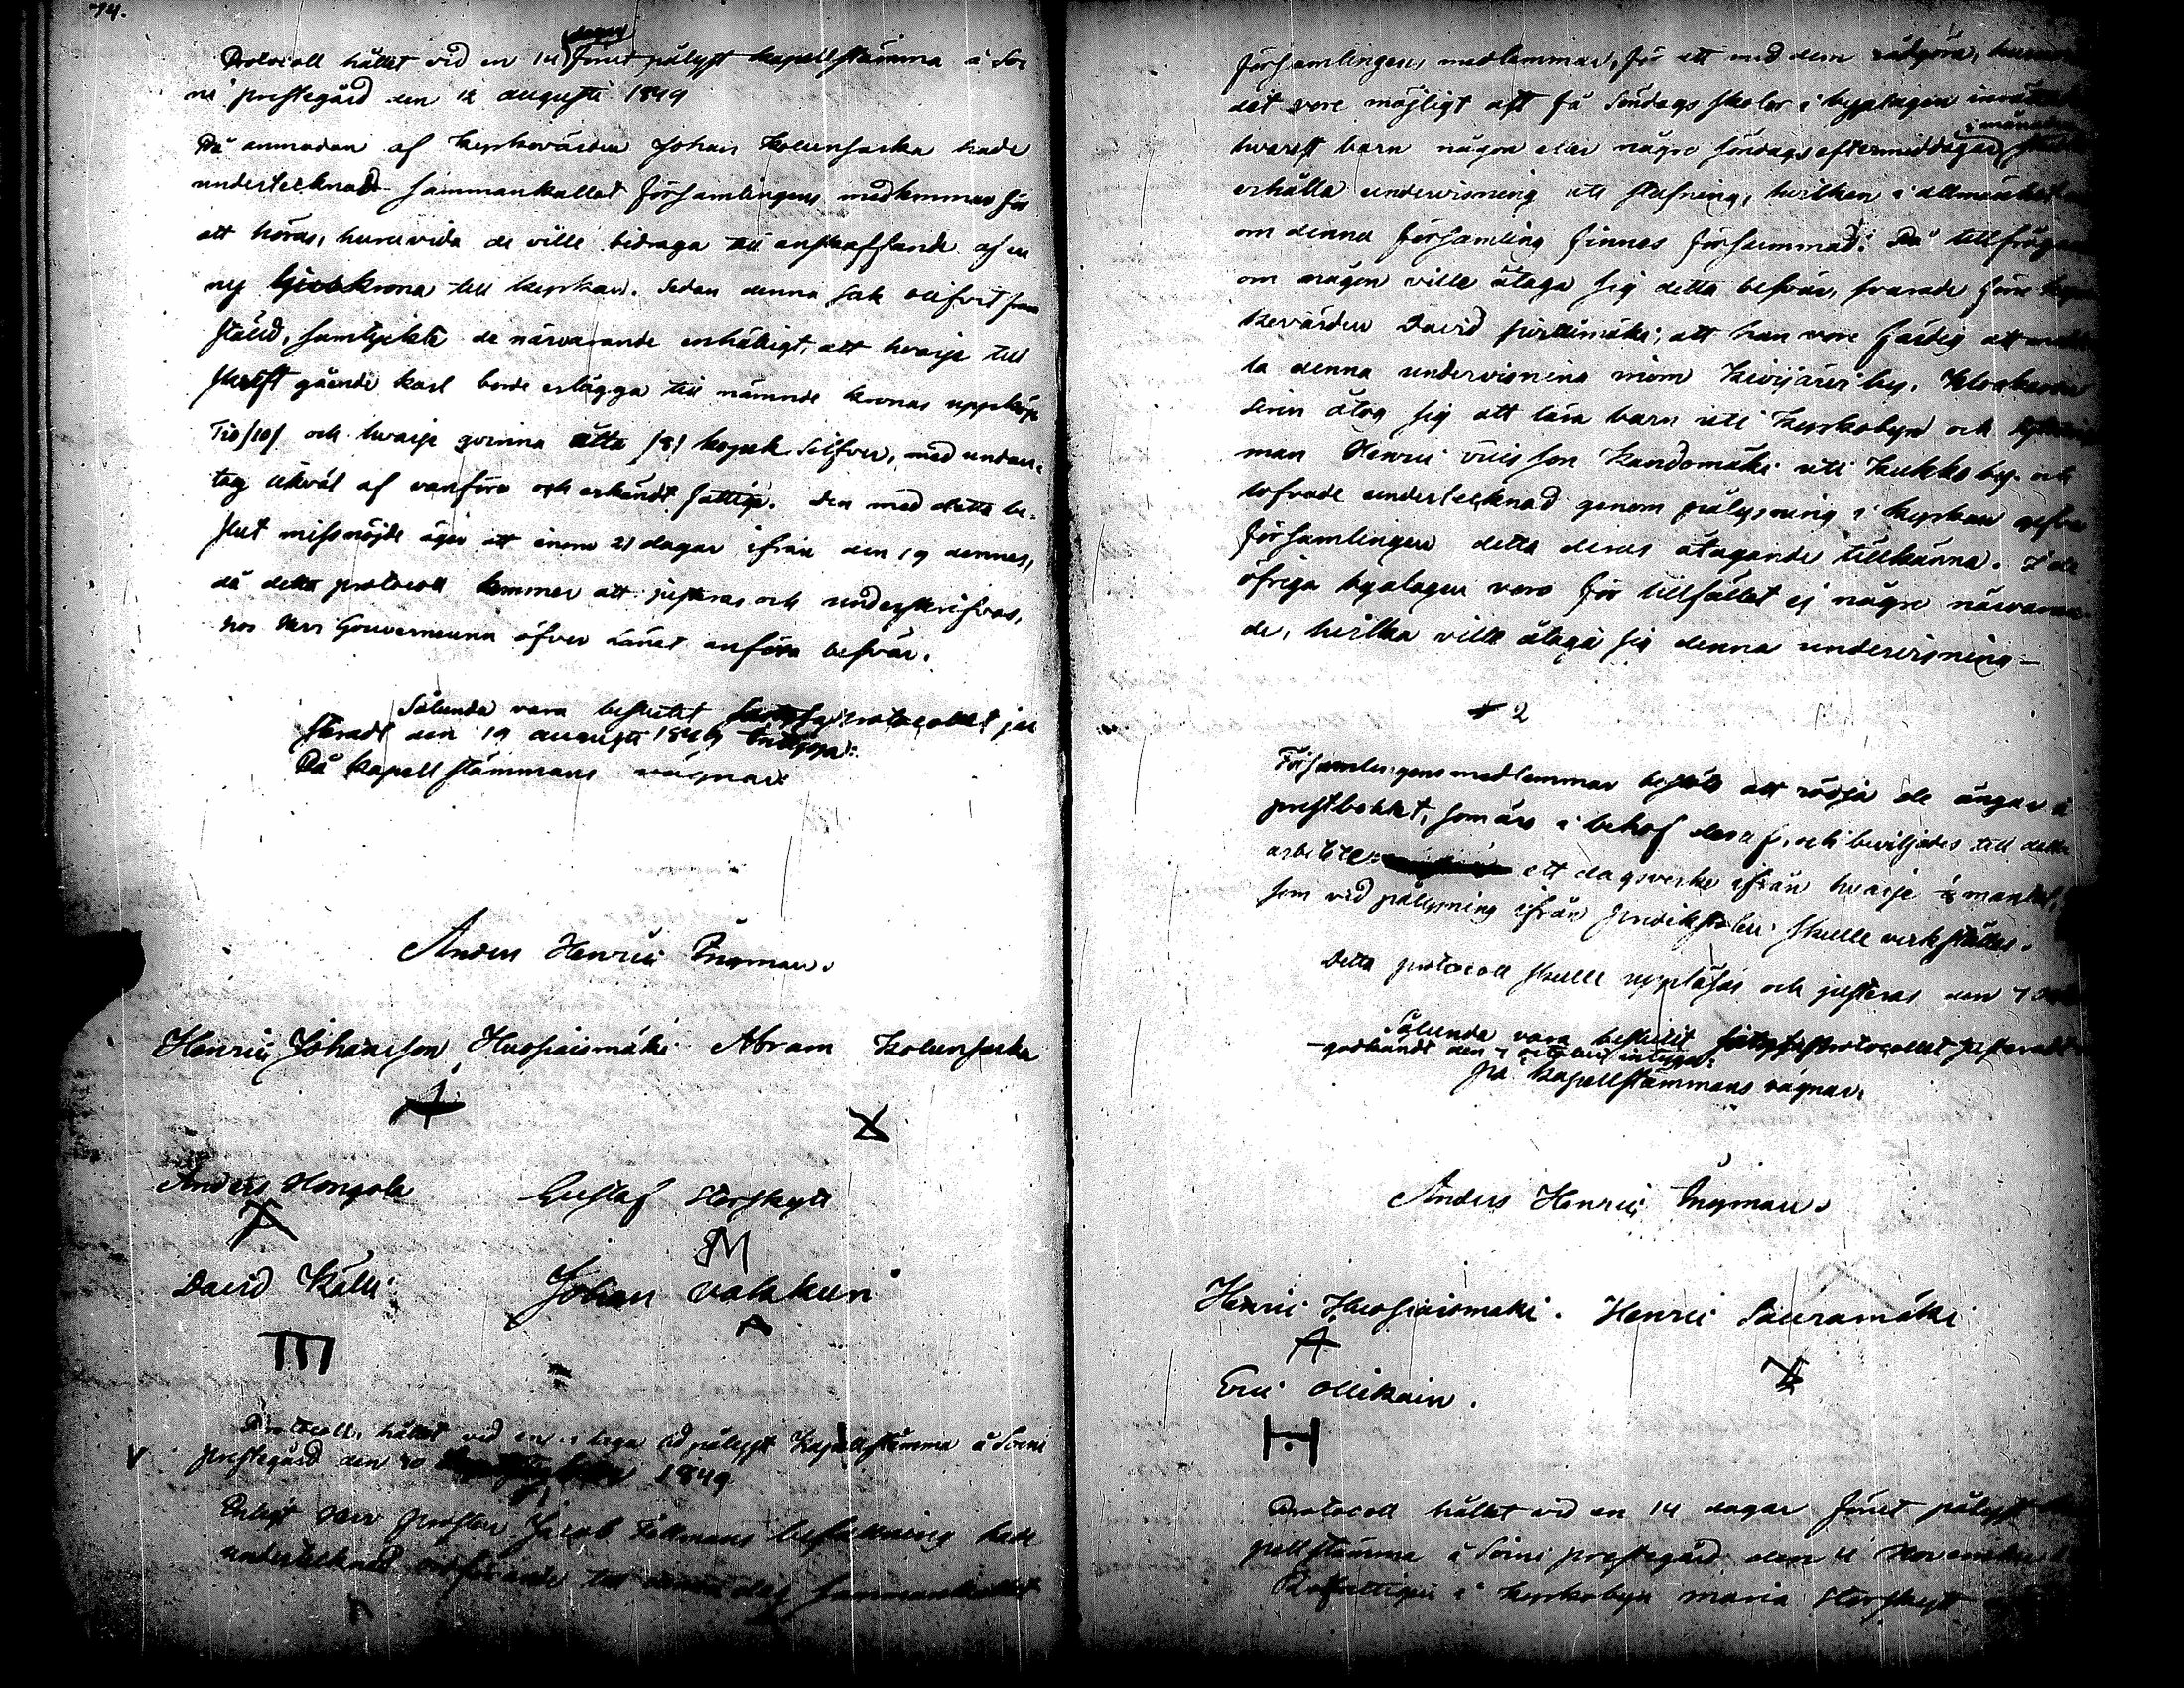 74.
Protocoll hållet vid en 14 dagar förut pålyst kapellstämma å Soi
ni prestegård den 12 augusti 1849
På anmodan af kyrkovärden Johan Kolunsarka hade
undertecknad sammankallat församlingens medlemmar för
att höras, huruvida de ville bidraga till anskaffande af en
ny ljuskrona till kyrkan. Sedan denna sak blifvit fram
stäld, samtyckte de närvarande enhäligt, att hvarje till
skrift gående karl borde erlägga till nämnde kronas uppköp
Tio /10/ och hvarje qvinna åtta /8/ kopek silfver, med undan-
tag likväl af vanföra och erkändt fattige. Den med detta be-
slut missnöjde äger att inom 21 dagar ifrån den 19 dennes,
då detta protocoll kommer att justeras och underskrifvas,
hos Herr Gouverneuren öfver Länet anföra besvär.
Sålunda vara beslutet protocollet ju
steradt den 19 augusti 1849 intyga:
På kapellstämmans vägnar
Anders Henric Ingman.
Henric Johansson Huosiaismäki Abram Kolunsarka
Anders Hongola Gustaf Storskytt
David Källi Johan Valakuri
Protocoll, hållet vid en dagar pålyst Kapellstämma å Soini
prestegård den 30 1849
Enligt Herr Prosten Jacob Fellmans befallning hade
undertecknad ordförande till denna dag sammankallat
församlingens medlemmar, för att med dem rådgöra, huru
det vore möjligt att få söndags skolor i byalagen
i månaden
hvarest barn någon eller några söndags eftermiddagar
erhålla undervisning uti stafning, hvilken i allmänhet
om denna församling finnes försummad. Då tillfrågades
om någon ville åtaga sig detta besvär, svarade förre
kovärden David att han vore färdig att
la denna undervisning inom Kivijärvi by. Klockaren
Sirin åtog sig att lära barn uti Kyrkobyn och
man Henric Ericsson Kandomäki uti Kukko by. och
lofvade undertecknad genom pålysning i kyrkan gifva
församlingen detta deras åtagande tillkänna. I de
öfriga byalagen voro för tillfället ej några närvaran
de, hvilka ville åtaga sig denna undervisning —
§ 2
Församlingens medlemmar beslöto att rödja de ängar å
prestbohlet, som äro i behof deraf, och beviljades till detta
arbete ett dagsverke ifrån hvarje mantal,
som vid pålysning ifrån predikstolen skulle verkställas.
Detta protocoll skulle uppläsas och justeras den 7
Sålunda vara beslutet protocollet justeradt
godkändt den 7 october intyga:
på kapellstämmans vägnar.
Anders Henric Ingman.
Henric Huosiaismäki. Henric Sauramäki
Eric Ollikain.
Protocoll hållet vid en 14 dagar förut pålyst
pellstämma å Soini prestegård den 4 November
i kyrkobyn Maria Storskytt